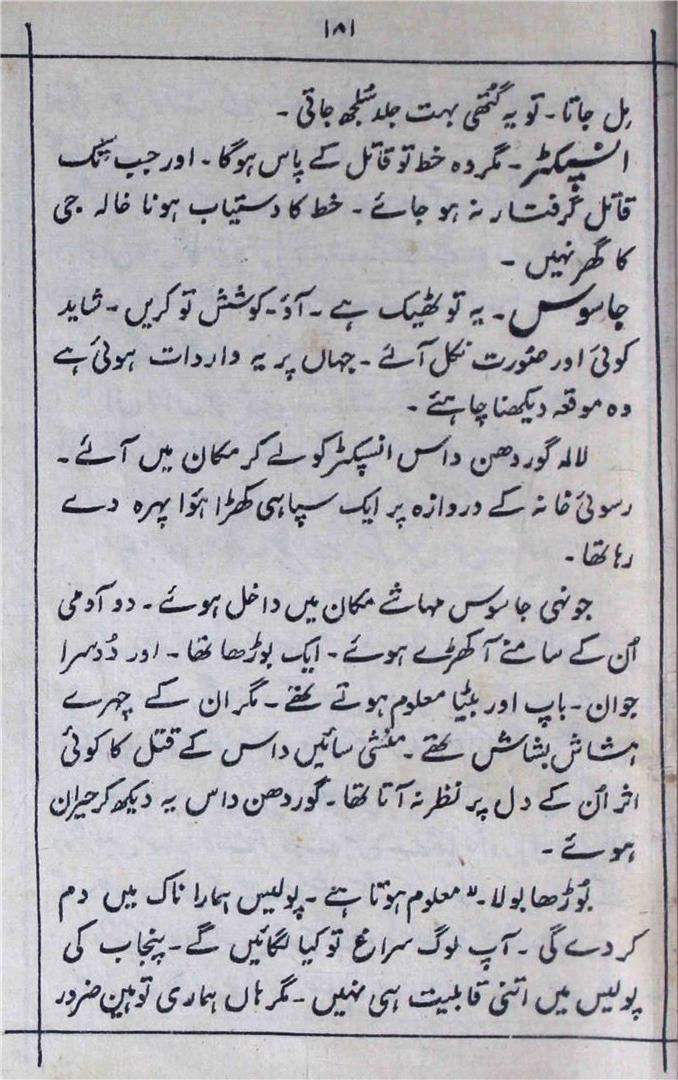 ۱۸۱
مِل جاتا۔ تو یہ گتھی بہت جلد سُلجھ جاتی۔
انسپکٹر۔ مگر وہ خط تو قاتل کے پاس ہوگا۔ اور جب تک
قاتل گرفتار نہ ہو جائے۔ خط کا دستیاب ہونا خالہ جی
کا گھر نہیں۔
جاسوس۔ یہ تو ٹھیک ہے۔ آؤ۔ کوشش تو کریں۔ شاید
کوئی اور صورت نکل آئے۔ جہاں پر یہ واردات ہوئی ہے
وہ موقعہ دیکھنا چاہئے۔
لالہ گوردھن داس انسپکٹر کو لے کر مکان میں آئے۔
رسوئی خانہ کے دروازہ پر ایک سپاہی کھڑا ہؤا پہرہ دے
رہا تھا۔
جونہی جاسوس مہاشے مکان میں داخل ہوئے۔ دو آدمی
اُن کے سامنے آ کھڑے ہوئے۔ ایک بوڑھا تھا۔ اور دُوسرا
جوان۔ باپ اور بیٹا معلوم ہوتے تھے۔ مگر ان کے چہرے
ہشاش بشاش تھے۔ منشی سائیں داس کے قتل کا کوئی
اثر اُن کے دل پر نظر نہ آتا تھا۔ گوردھن داس یہ دیکھ کر حیران
ہوئے۔
بُوڑھا بولا۔ "معلوم ہوتا ہے۔ پولیس ہمارا ناک میں دم
کر دے گی۔ آپ لوگ سراغ تو کیا لگائیں گے۔ پنجاب کی
پولیس میں اتنی قابلیت ہی نہیں۔ مگر ہاں ہماری توہین ضرور